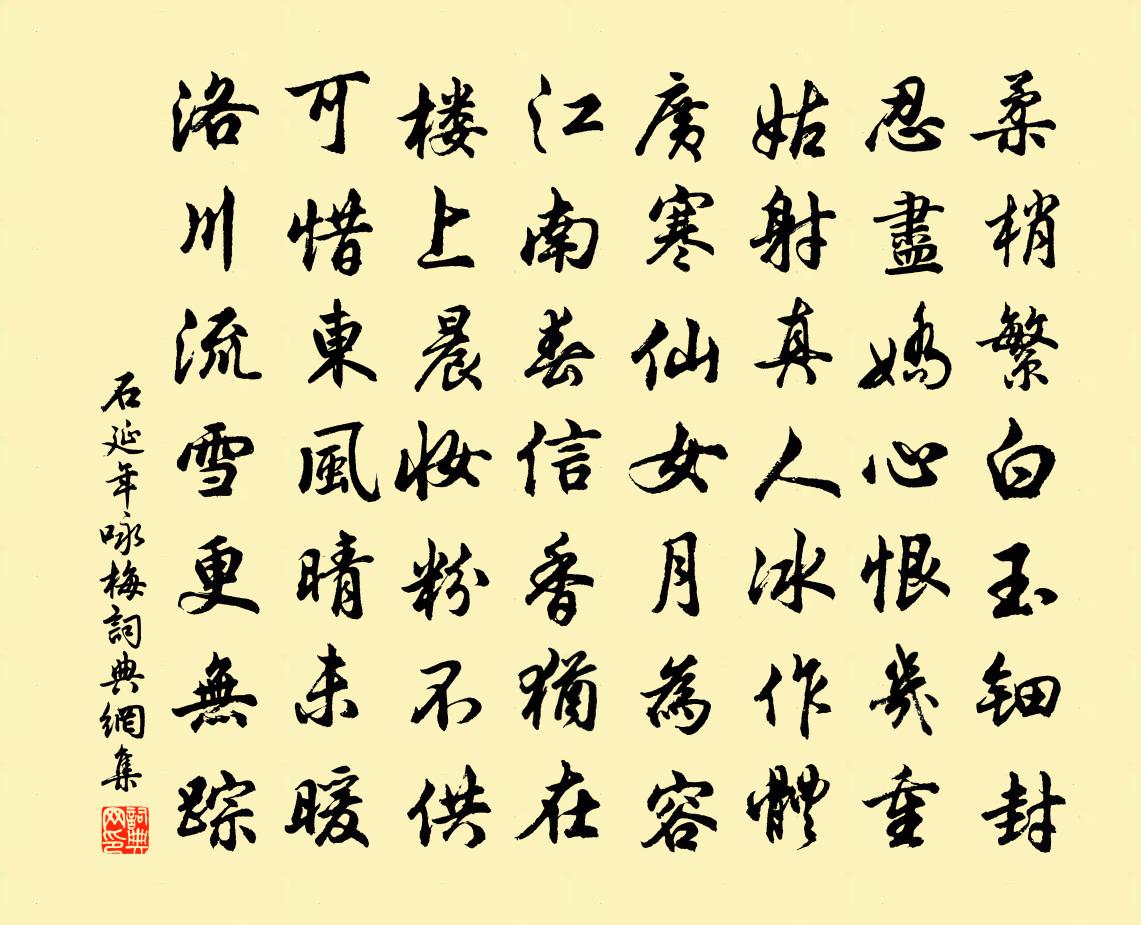 柔梢繁白玉钿封
忍盡嬌心恨幾重
姑射真人冰作體
廣寒仙女月為容
江南春信香猶在
楼上晨妆粉不供
可惜東風晴未暖
洛川流雪更無踪
石延年咏梅詞典網集
詞典网印